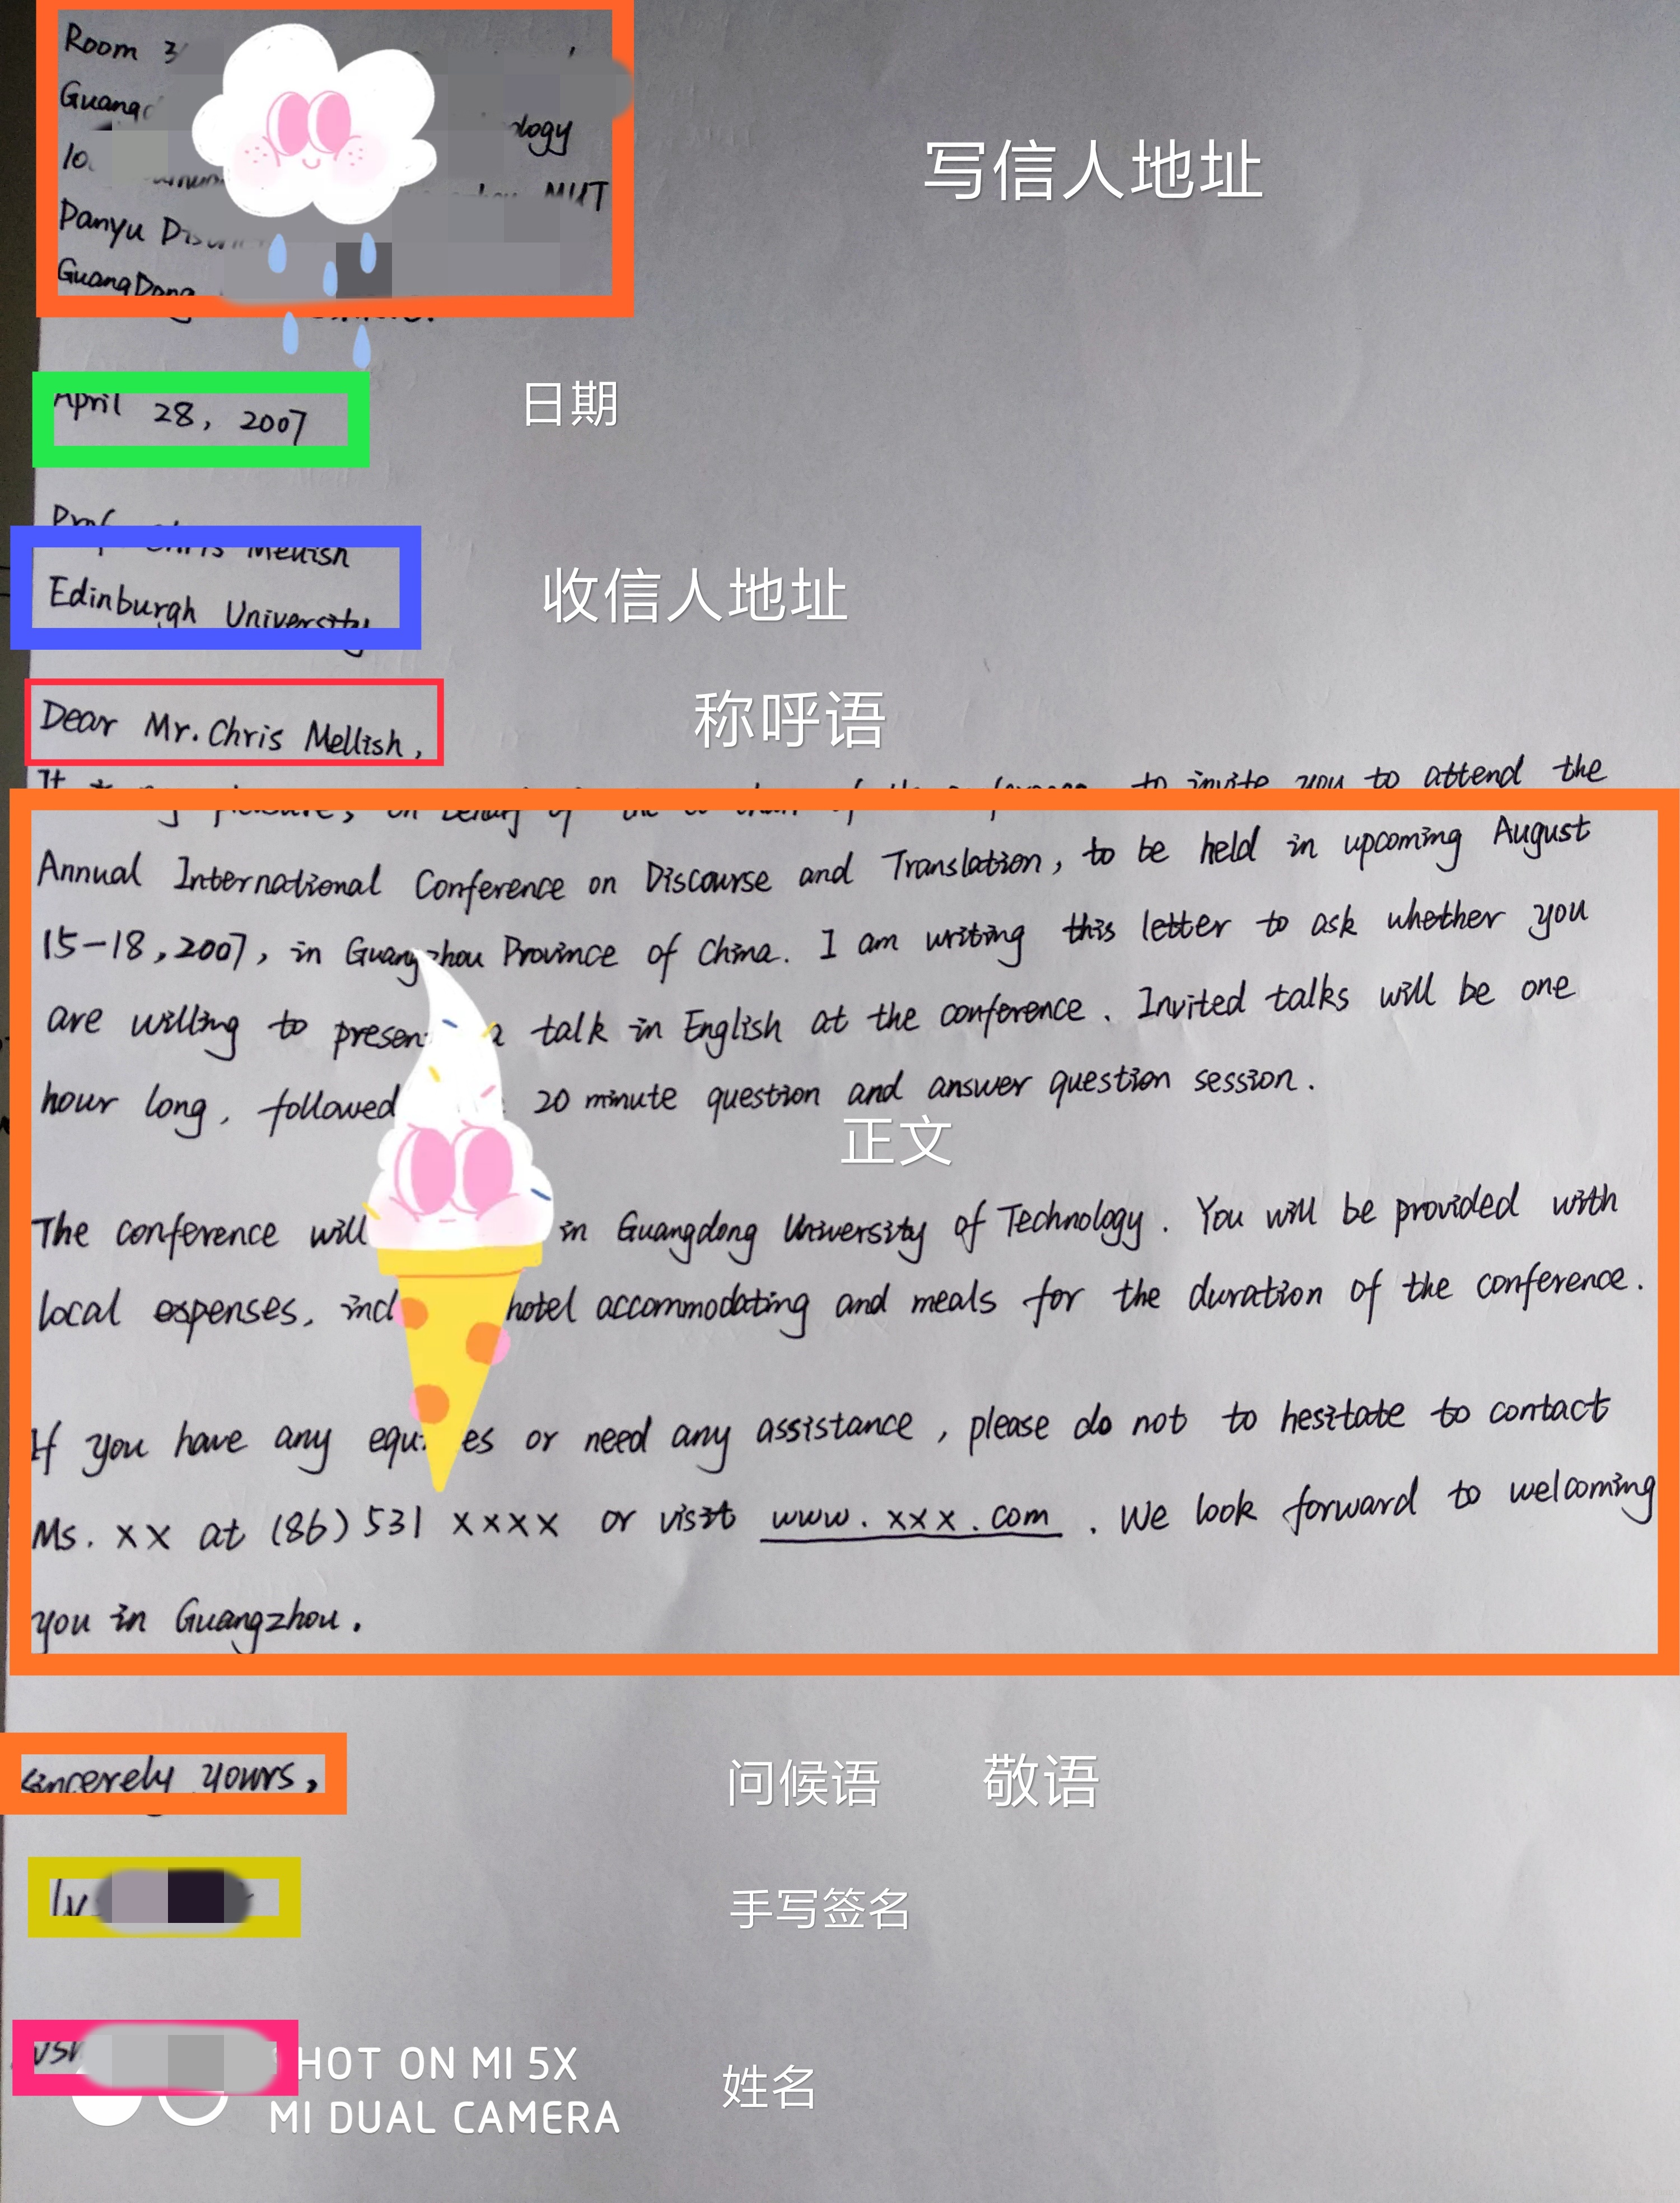 Room
写信人地址
Panyu
GuangDong
April 28, 2007
日期
Prof. Chris Mellish
Edinburgh University
收信人地址
Dear Mr. Chris Mellish,
称呼语
It is my pleasure, on behalf of the co-chair of the conference, to invite you to attend the
Annual International Conference on Discourse and Translation, to be held in upcoming August
15-18, 2007, in Guangzhou Province of China. I am writing this letter to ask whether you
are willing to present a talk in English at the conference. Invited talks will be one
hour long, followed 20 minute question and answer question session.
正文
The conference will in Guangdong University of Technology. You will be provided with
local expenses, hotel accommodating and meals for the duration of the conference.
If you have any or need any assistance, please do not to hesitate to contact
Ms. XX at (86) 531 XXXX or visit www.xxx.com. We look forward to welcoming
you in Guangzhou.
Sincerely yours,
问候语 敬语
手写签名
姓名
SHOT ON MI 5X
MI DUAL CAMERA